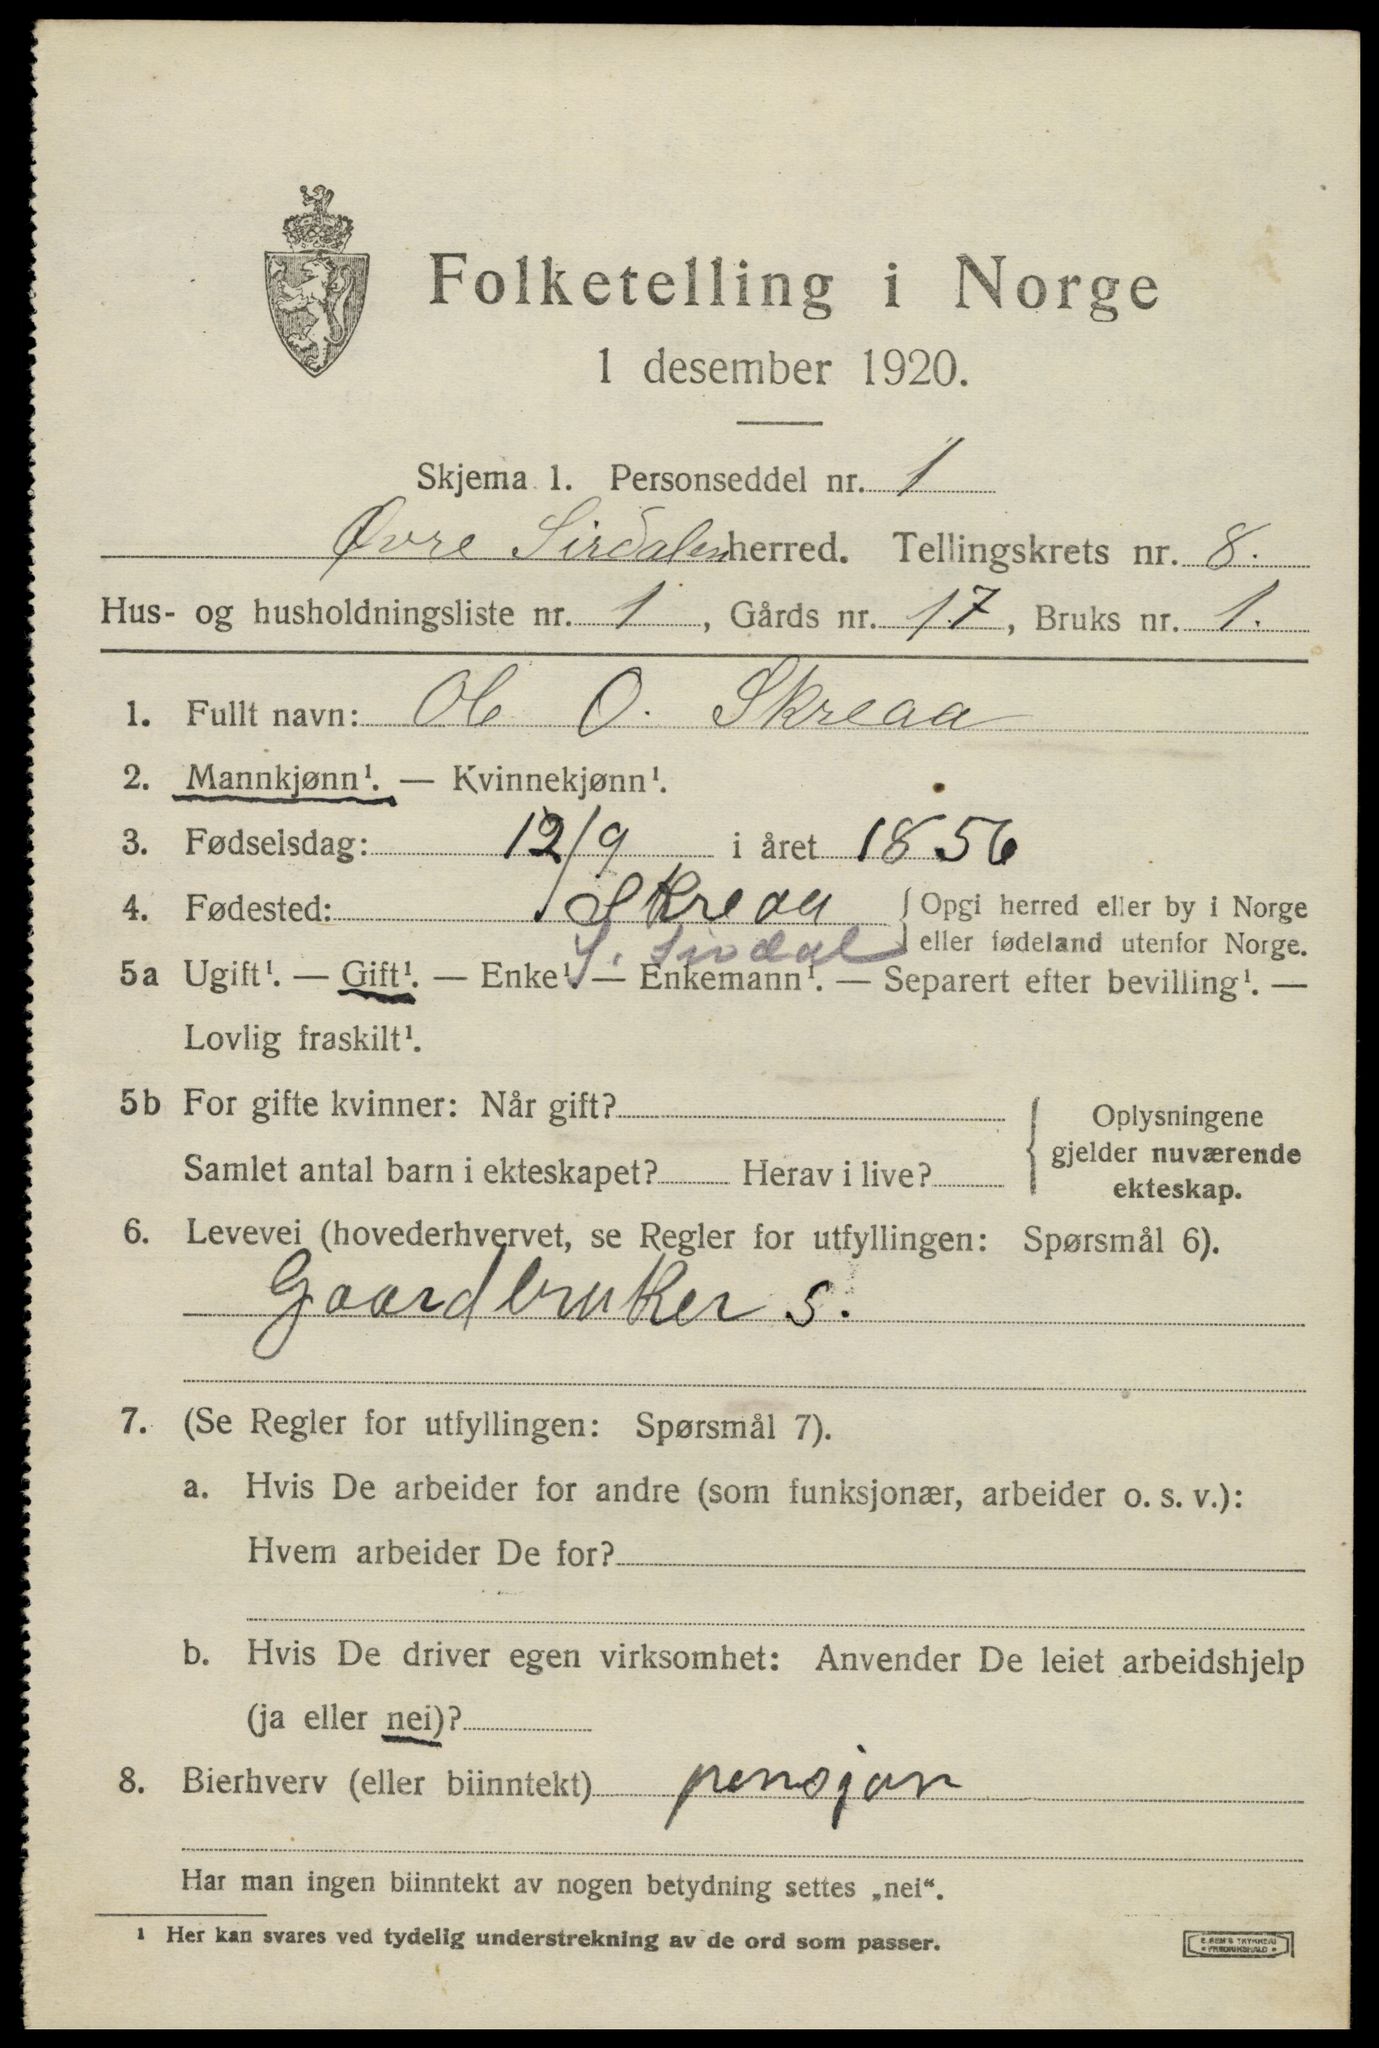 Folketelling i Norge
1 desember 1920.
Skjema 1. Personseddel nr. 1
Øvre Sirdalen herred. Tellingskrets nr. 8.
Hus- og husholdningsliste nr. 1, Gårds nr. 17, Bruks nr. 1.
1. Fullt navn: Ole O. Skreaa
2. Mannkjønn¹. — Kvinnekjønn¹.
3. Fødselsdag: 12/9 i året 1856
4. Fødested: Skreaa { Opgi herred eller by i Norge
S. Sirdal eller fødeland utenfor Norge.
5a Ugift¹. — Gift¹. — Enke¹. — Enkemann¹. — Separert efter bevilling¹. —
Lovlig fraskilt¹.
5b For gifte kvinner: Når gift? { Oplysningene
gjelder nuværende
Samlet antal barn i ekteskapet? Herav i live?
ekteskap.
6. Levevei (hovederhvervet, se Regler for utfyllingen: Spørsmål 6).
Gaardbruker s.
7. (Se Regler for utfyllingen: Spørsmål 7).
a. Hvis De arbeider for andre (som funksjonær, arbeider o. s. v.):
Hvem arbeider De for?
b. Hvis De driver egen virksomhet: Anvender De leiet arbeidshjelp
(ja eller nei)?
8. Bierhverv (eller biinntekt) pensjon
Har man ingen biinntekt av nogen betydning settes „nei“.
¹ Her kan svares ved tydelig understrekning av de ord som passer.
E. SEM'S TRYKKERI
• FREDRIKSHALD •